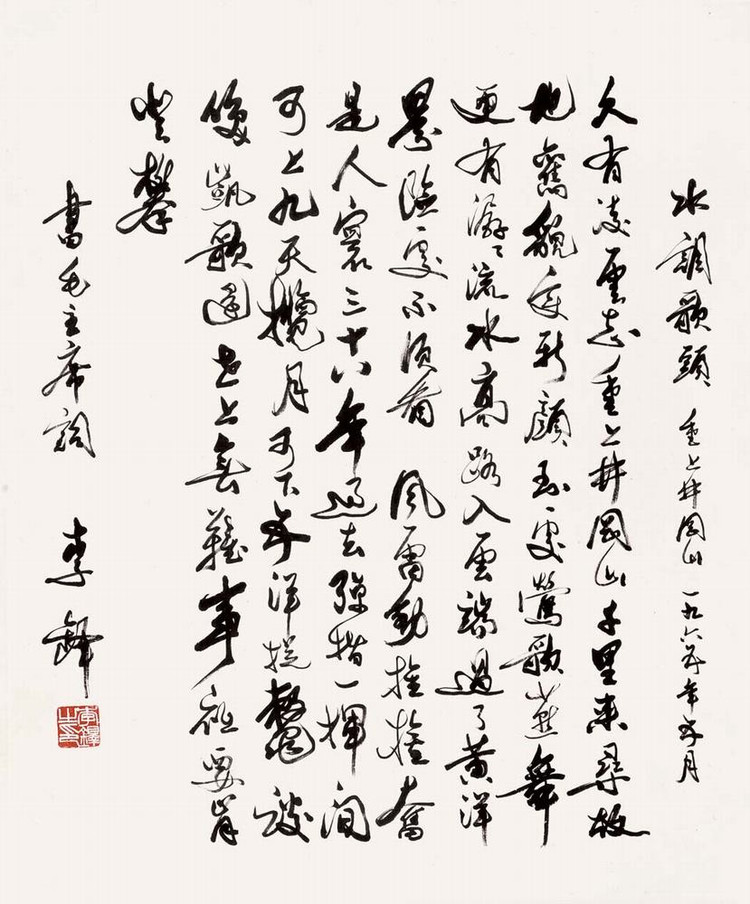 水調歌頭 重上井岡山 一九六五年五月
久有凌雲志重上井岡山千里來尋故
地舊貌變新顏到處鶯歌燕舞
更有潺々流水高路入雲端過了黃洋
界險處不須看 風雷動旌旗奮
是人寰三十八年過去彈指一揮間
可上九天攬月可下五洋捉鱉談
咲凱歌還世上無難事祇要肯
登攀
書毛主席詞 李鐸
李鐸之印